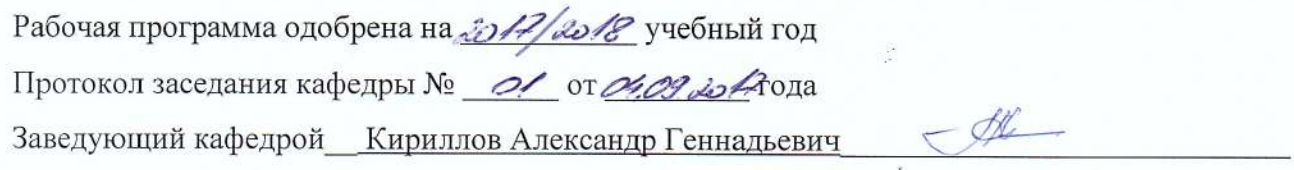 Рабочая программа одобрена на 2017/2018 учебный год
Протокол заседания кафедры № 01 от 04.09.2017 года
Заведующий кафедрой Кириллов Александр Геннадьевич